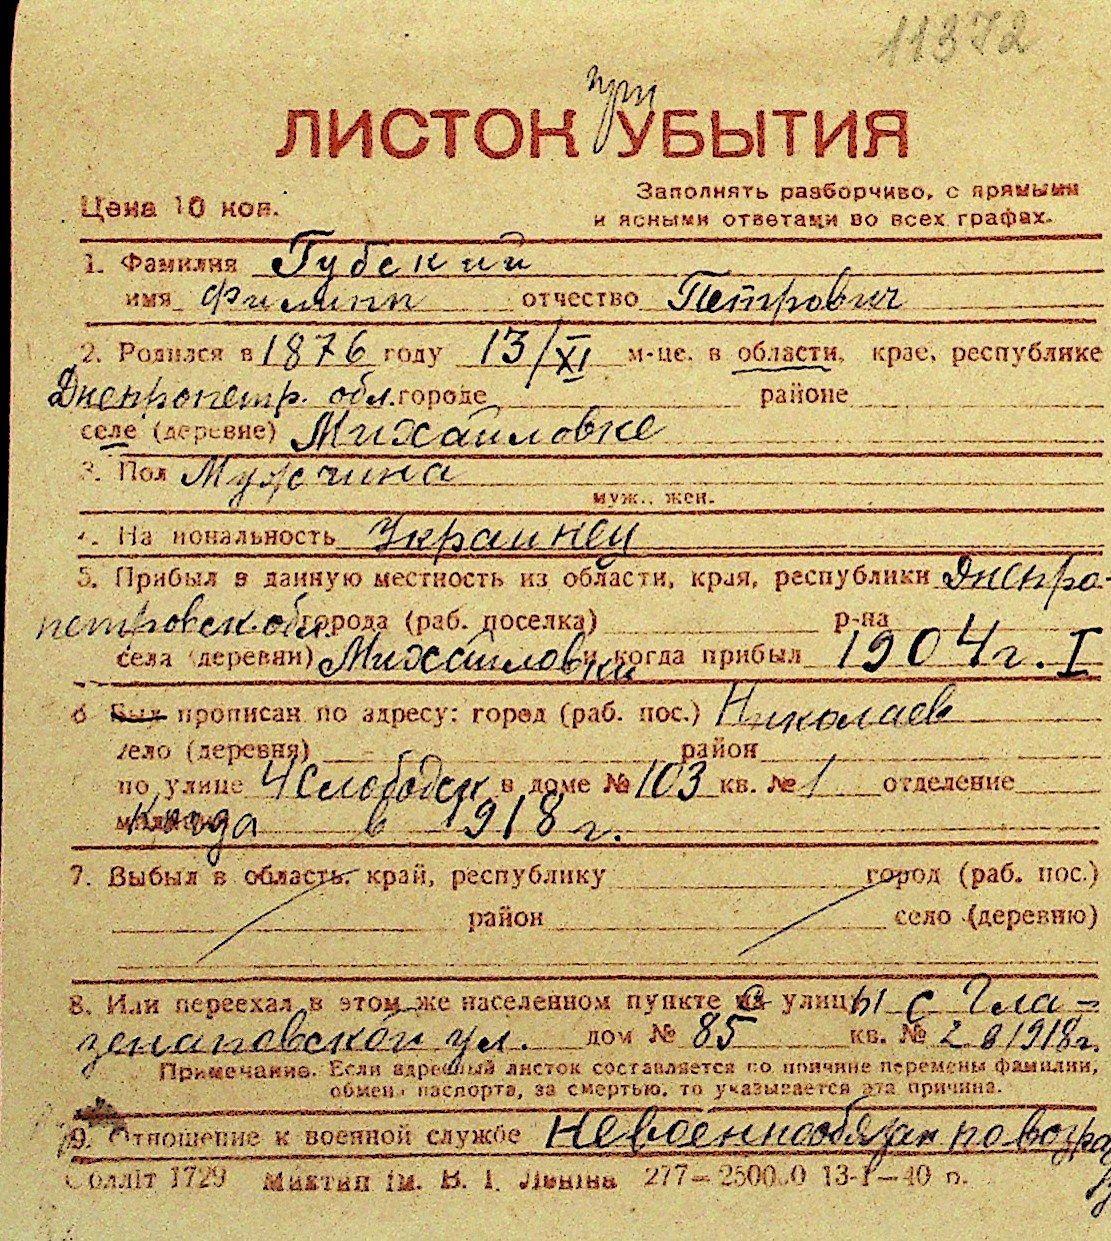 11372
при
ЛИСТОК УБЫТИЯ
Цена 10 коп.
Заполнять разборчиво, с прямыми
и ясными ответами во всех графах.
1. Фамилия Губский
имя Филипп отчество Петрович
2. Родился в 1876 году 13/XI м-це. в области, крае, республике
Днепропетр. обл. городе районе
селе (деревне) Михайловке
3. Пол Мужчина
муж., жен.
4. Национальность Украинец
5. Прибыл в данную местность из области, края, республики Днепро-
петровск. обл. города (раб. поселка) р-на
села (деревни) Михайловки когда прибыл 1904 г. I
6 Был прописан по адресу: город (раб. пос.) Николаев
село (деревня) район
по улице 4 Слободск в доме № 103 кв. № 1 отделение
милиции Когда в 1918 г.
7. Выбыл в область, край, республику город (раб. пос.)
район село (деревню)
8. Или переехал в этом же населенном пункте с улицы с Гла-
зенаповской ул. дом № 85 кв. № 2 в 1918 г.
Примечание. Если адресный листок составляется по причине перемены фамилии,
обмена паспорта, за смертью, то указывается эта причина.
9. Отношение к военной службе Невоеннообязан по возра
Облліт 1729 Миктип ім. В. І. Леніна 277—250000 13-I—40 р.